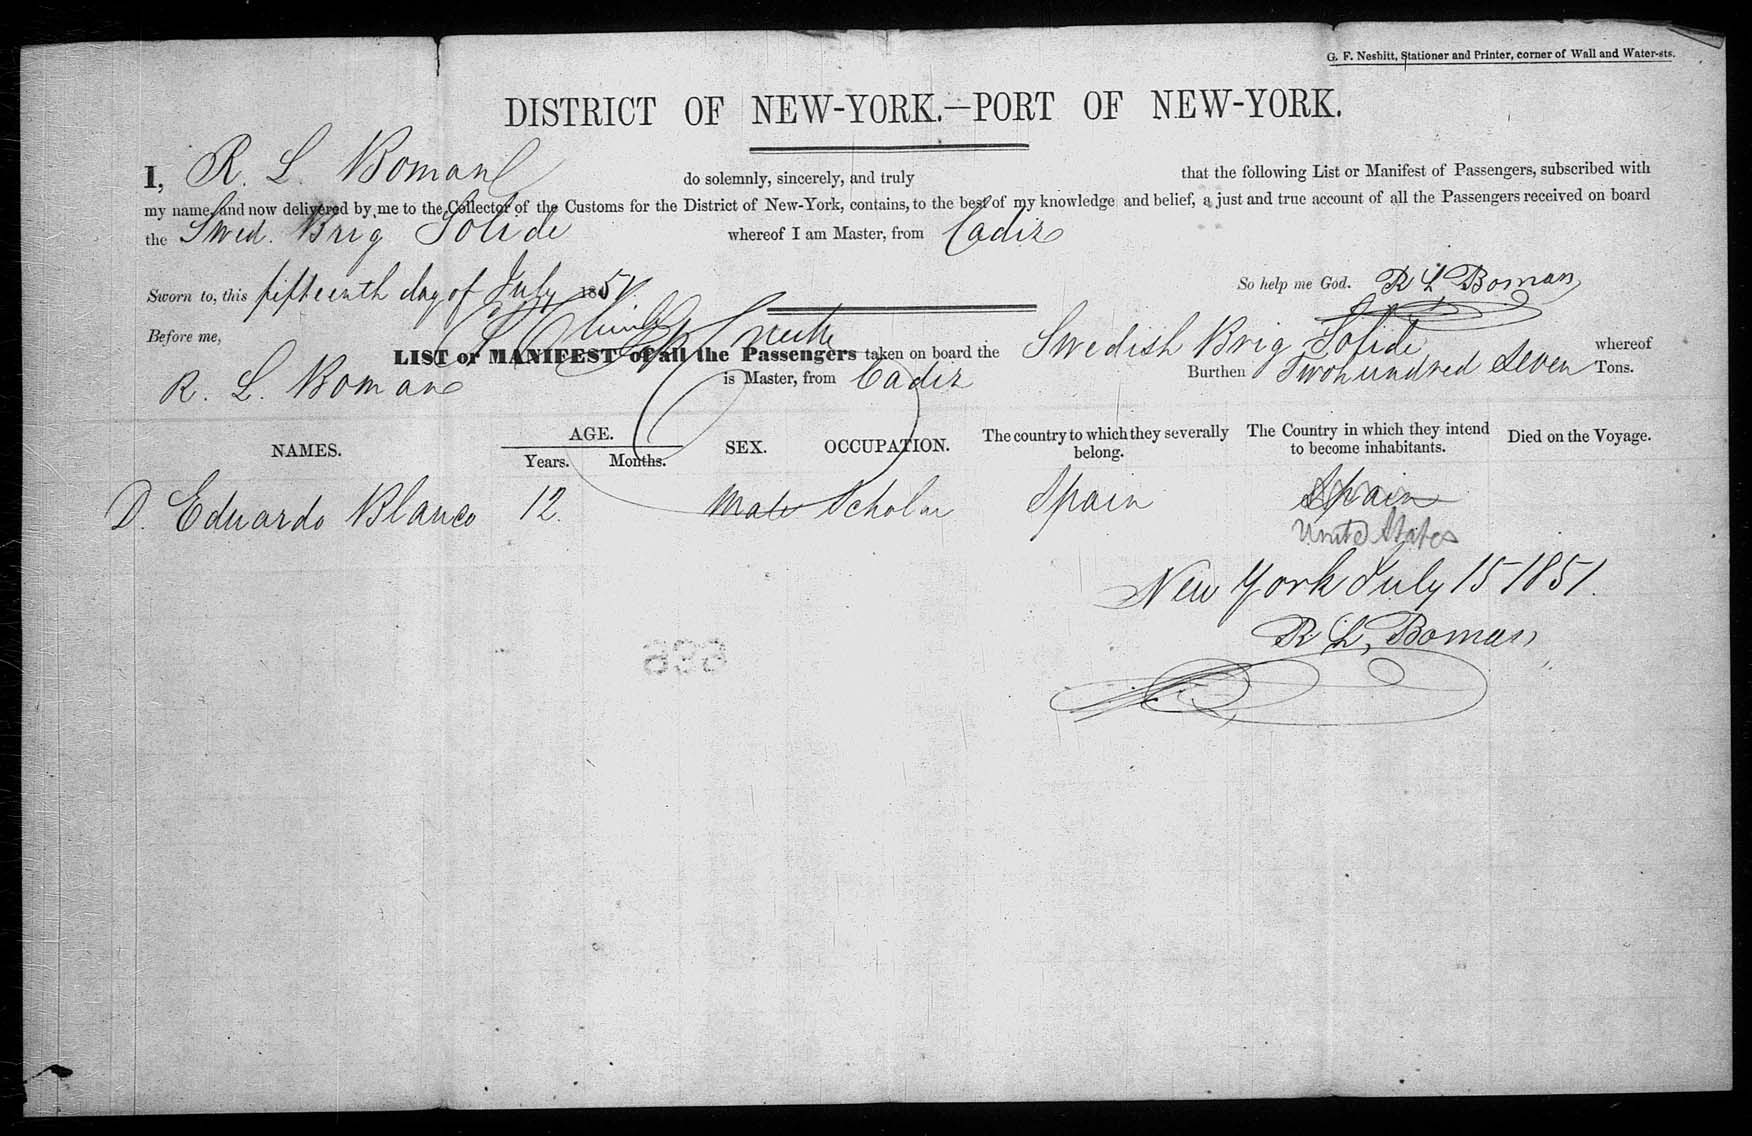 G. F. Nesbitt, Stationer and Printer, corner of Wall and Water-sts.
DISTRICT OF NEW-YORK.—PORT OF NEW-YORK.
I, R. L. Boman do solemnly, sincerely, and truly that the following List or Manifest of Passengers, subscribed with
my name, and now delivered by me to the Collector of the Customs for the District of New-York, contains, to the best of my knowledge and belief, a just and true account of all the Passengers received on board
the Swed. Brig Solide whereof I am Master, from Cadiz
Sworn to, this fifteenth day of July 1851 So help me God. R L Boman
Before me,
LIST or MANIFEST of all the Passengers taken on board the Swedish Brig Solide whereof
R. L. Boman is Master, from Cadiz Burthen Twohundred Seven Tons.
NAMES. AGE. SEX. OCCUPATION. The country to which they severally belong. The Country in which they intend to become inhabitants. Died on the Voyage.
Years. Months.
D. Eduardo Blanco 12. Male Scholar Spain Spain
United States
New York July 15 1851.
R L, Boman